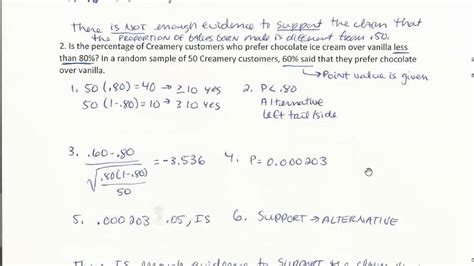 There is NOT enough evidence to support the claim that
the proportion of babies born male is different from .50.
2. Is the percentage of Creamery customers who prefer chocolate ice cream over vanilla less
than 80%? In a random sample of 50 Creamery customers, 60% said that they prefer chocolate
over vanilla.
→ Point value is given
1. 50(.80)=40 → ≥10 yes
50(1-.80)=10 → ≥10 yes
2. P<.80
Alternative
left tail/side
3. .60-.80
√.80(1-.80)
50
= -3.536
4. P=0.000203
5. .000203 .05, IS
6. SUPPORT → ALTERNATIVE
There IS enough evidence to SUPPORT the claim